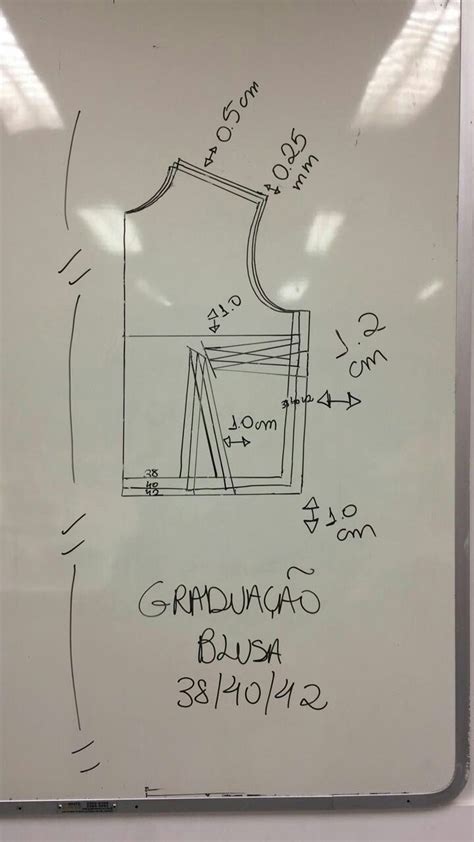 0.5cm
0.25
mm
1.0
1.2
cm
38 40 42
1.0cm
38
40
42
1.0
cm
GRADUAÇÃO
BLUSA
38/40/42